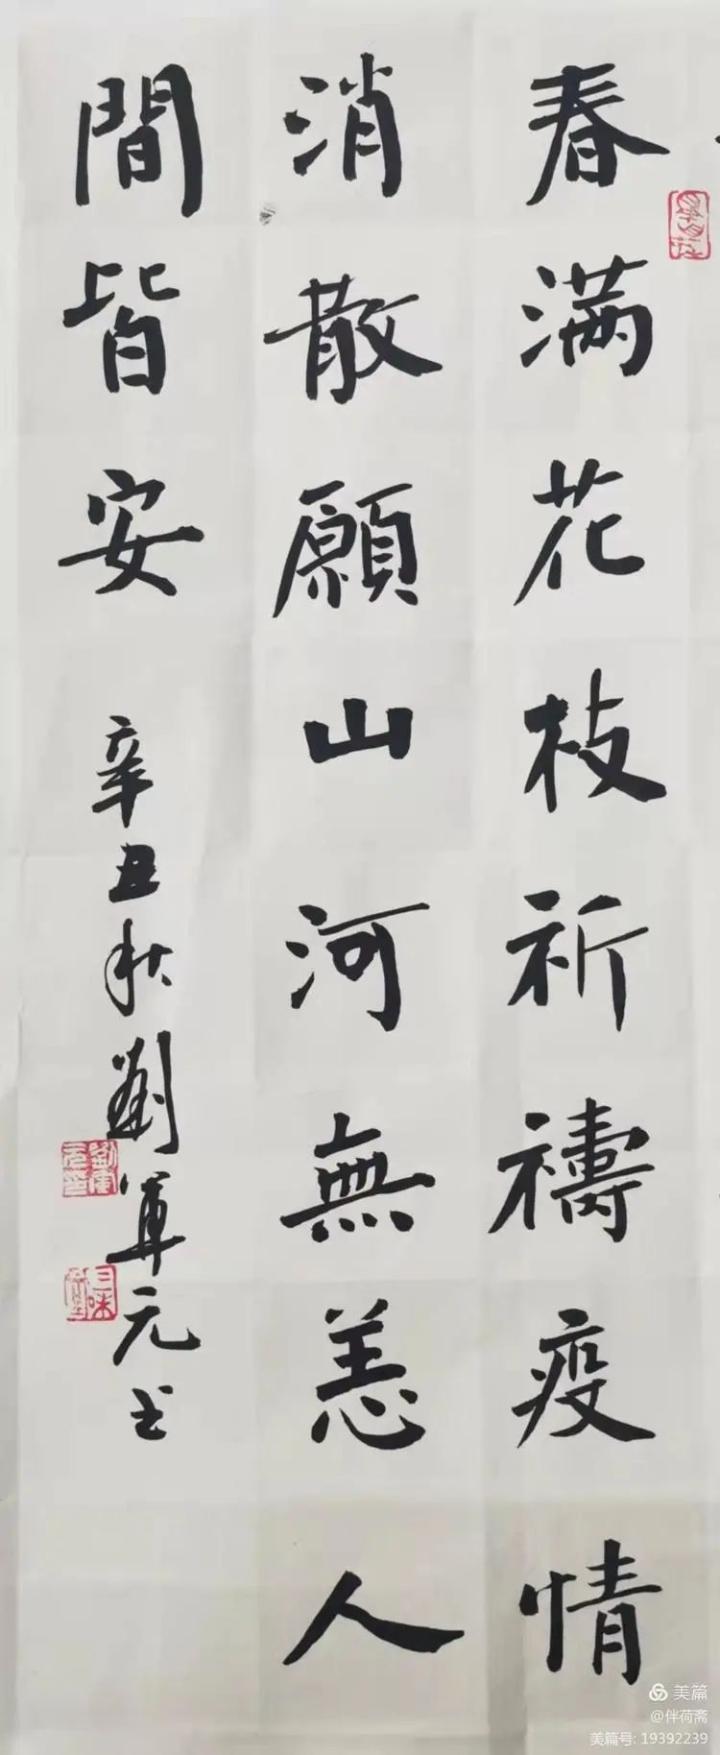 春满花枝祈禱疫情
消散願山河無恙人
間皆安
辛丑秋劉軍元书
劉軍元印
三味
美篇
@伴荷斋
美篇号: 19392239